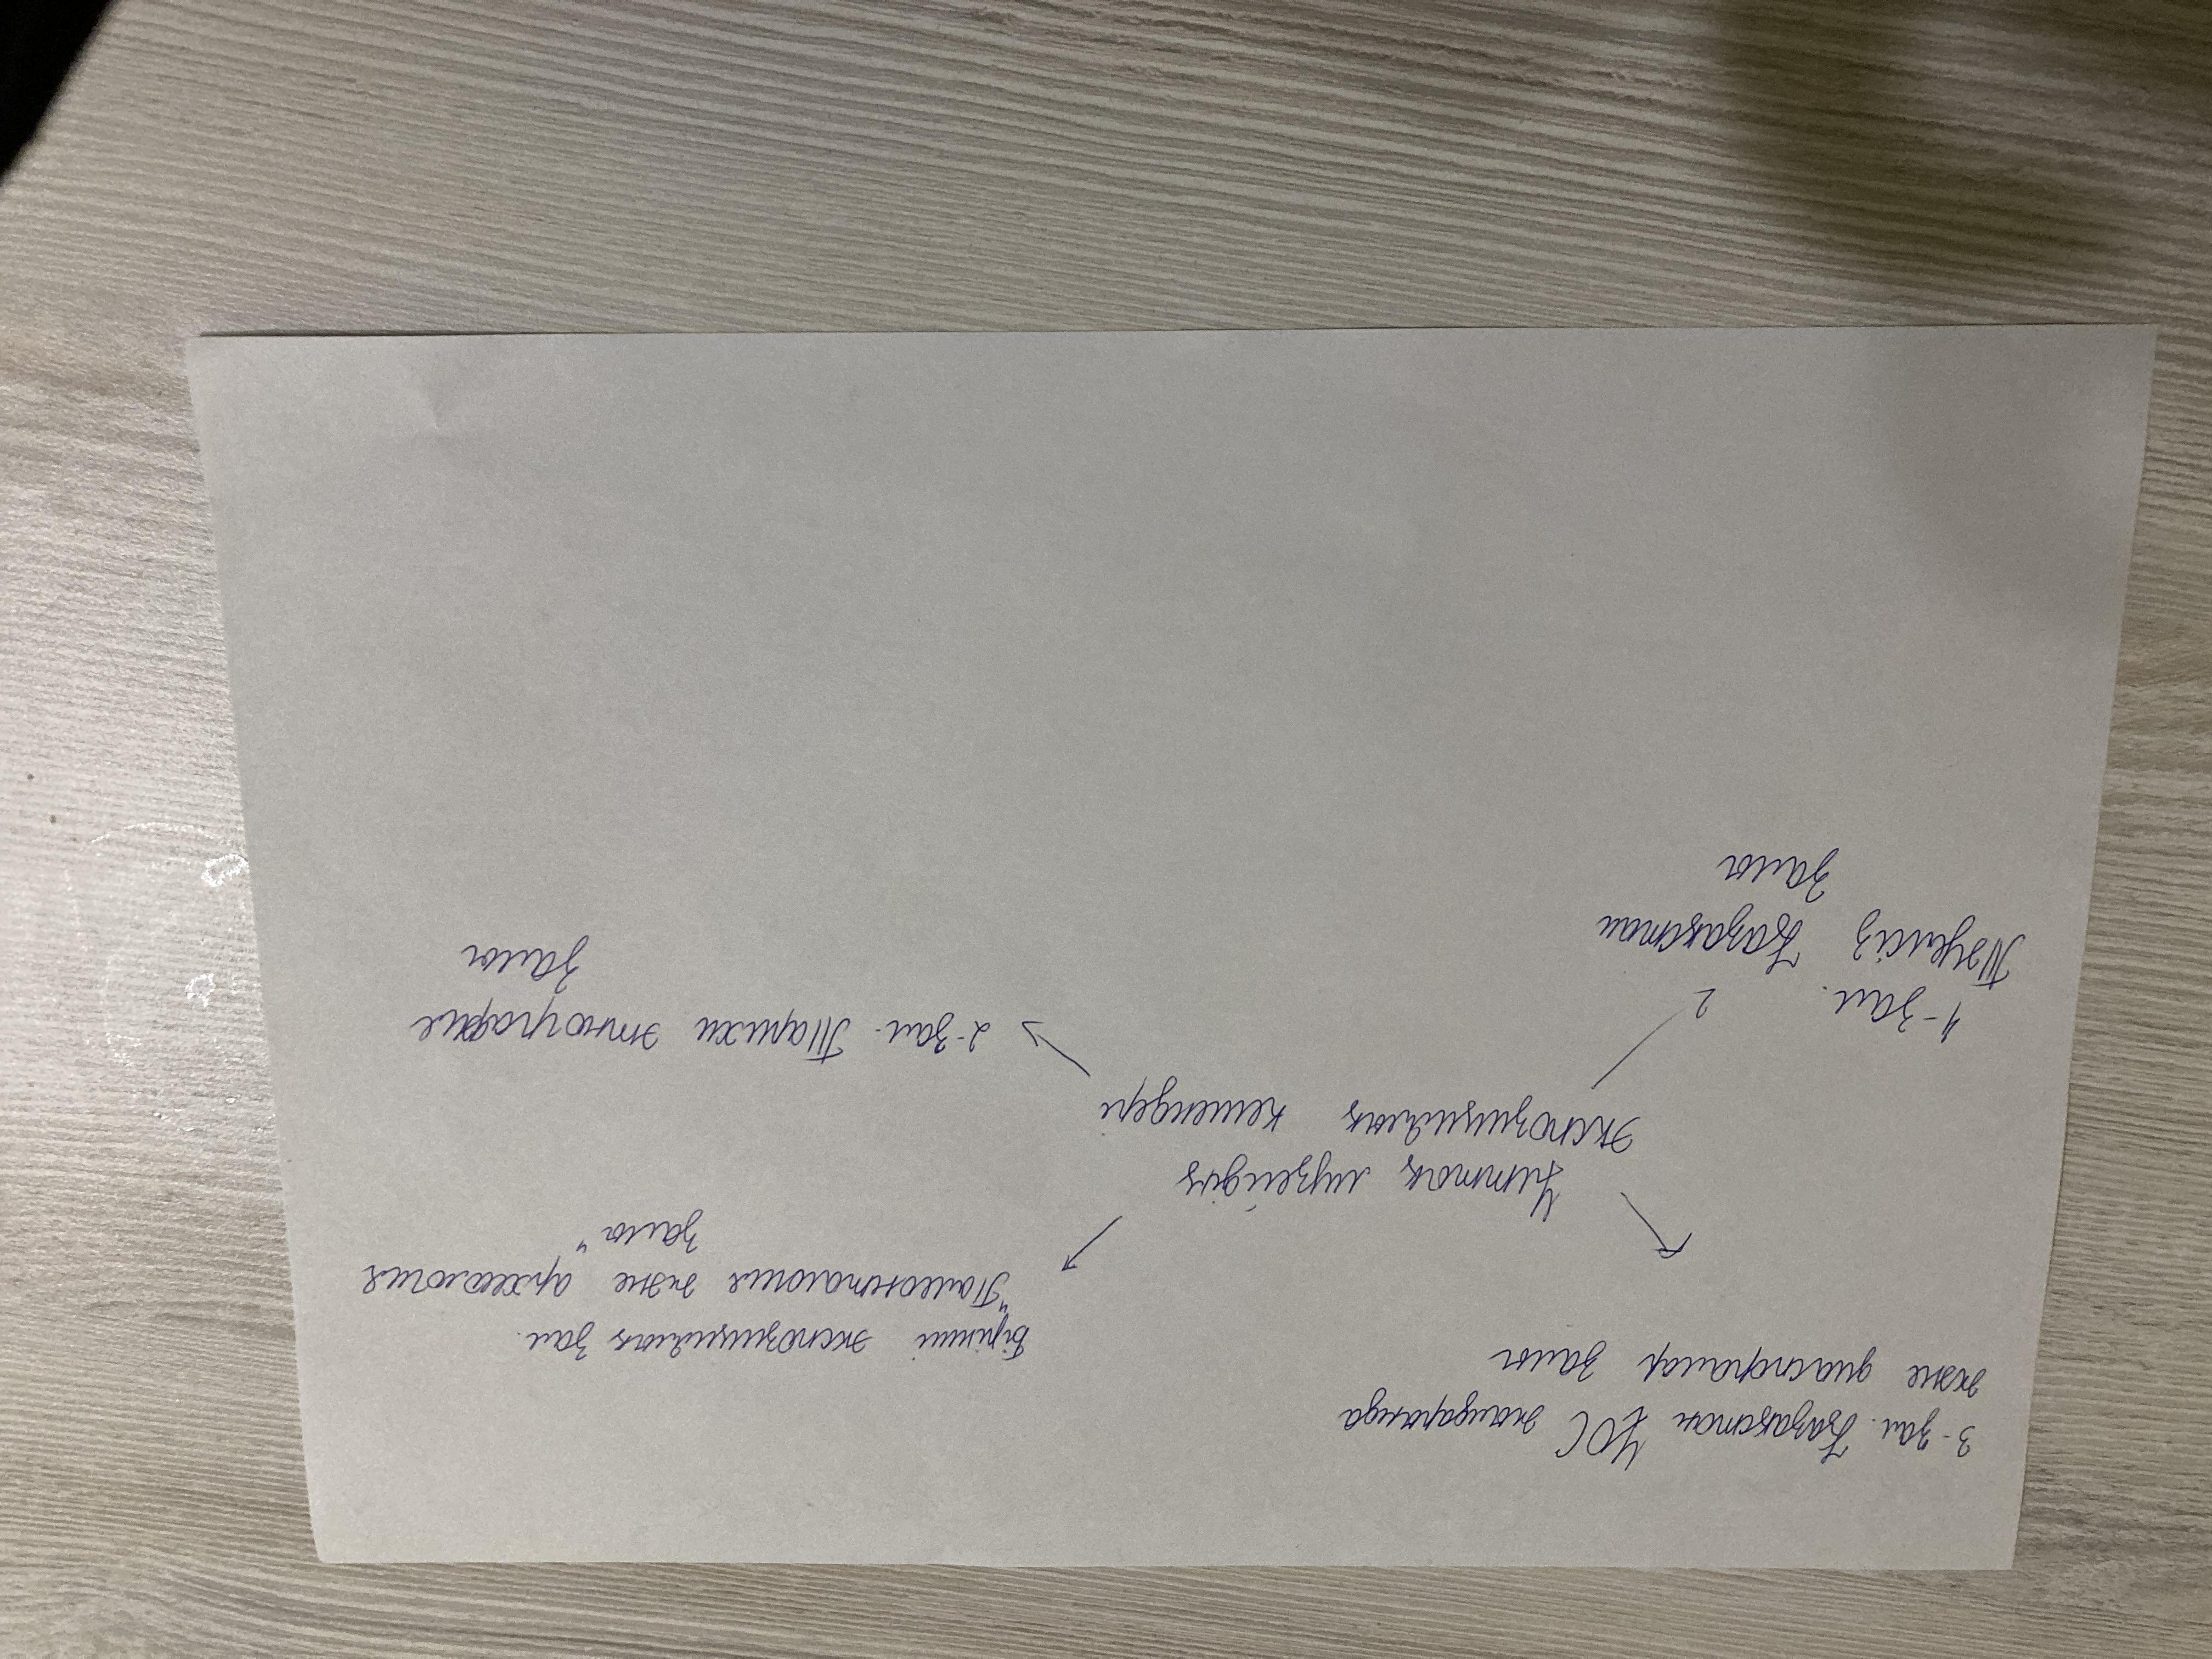 3-зал. Қазақстан ҰОС жылдарында
және диаспоралар залы
Бірінші экспозициялық зал.
"Палеонтология және археология
залы"
Ұлттық музейдің
экспозициялық кешендері
4-зал.
Тәуелсіз Қазақстан
залы
2-зал. Тарихи этнография
залы